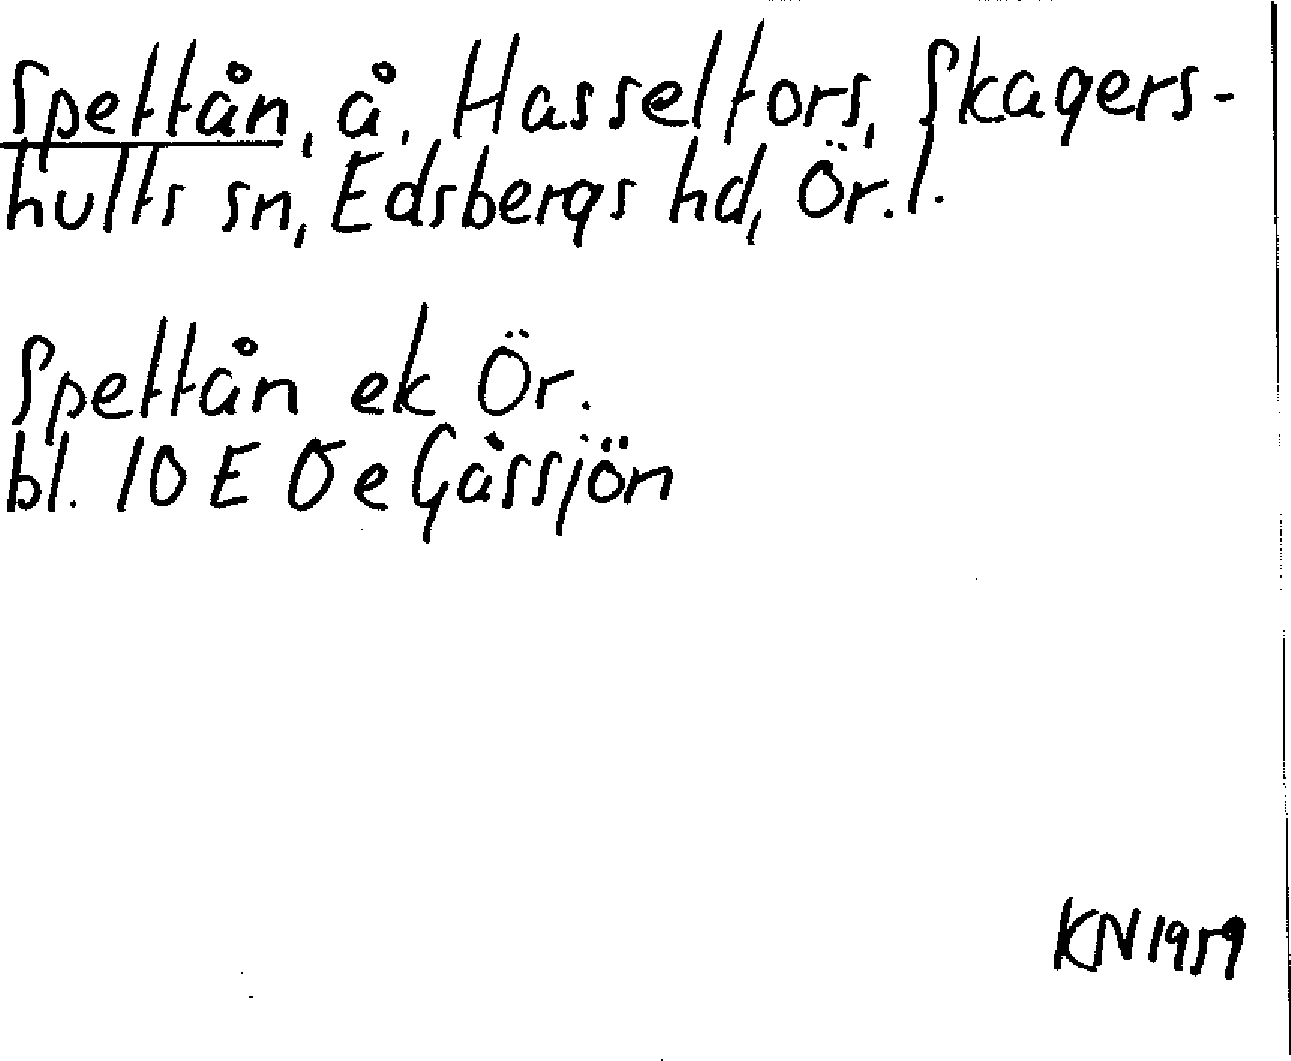 Spettån, å, Hasselfors, Skagers-
hults sn, Edsbergs hd, Ör.l.
Spettån ek Ör.
bl. 10 E Ö e Gåssjön
KN 1959